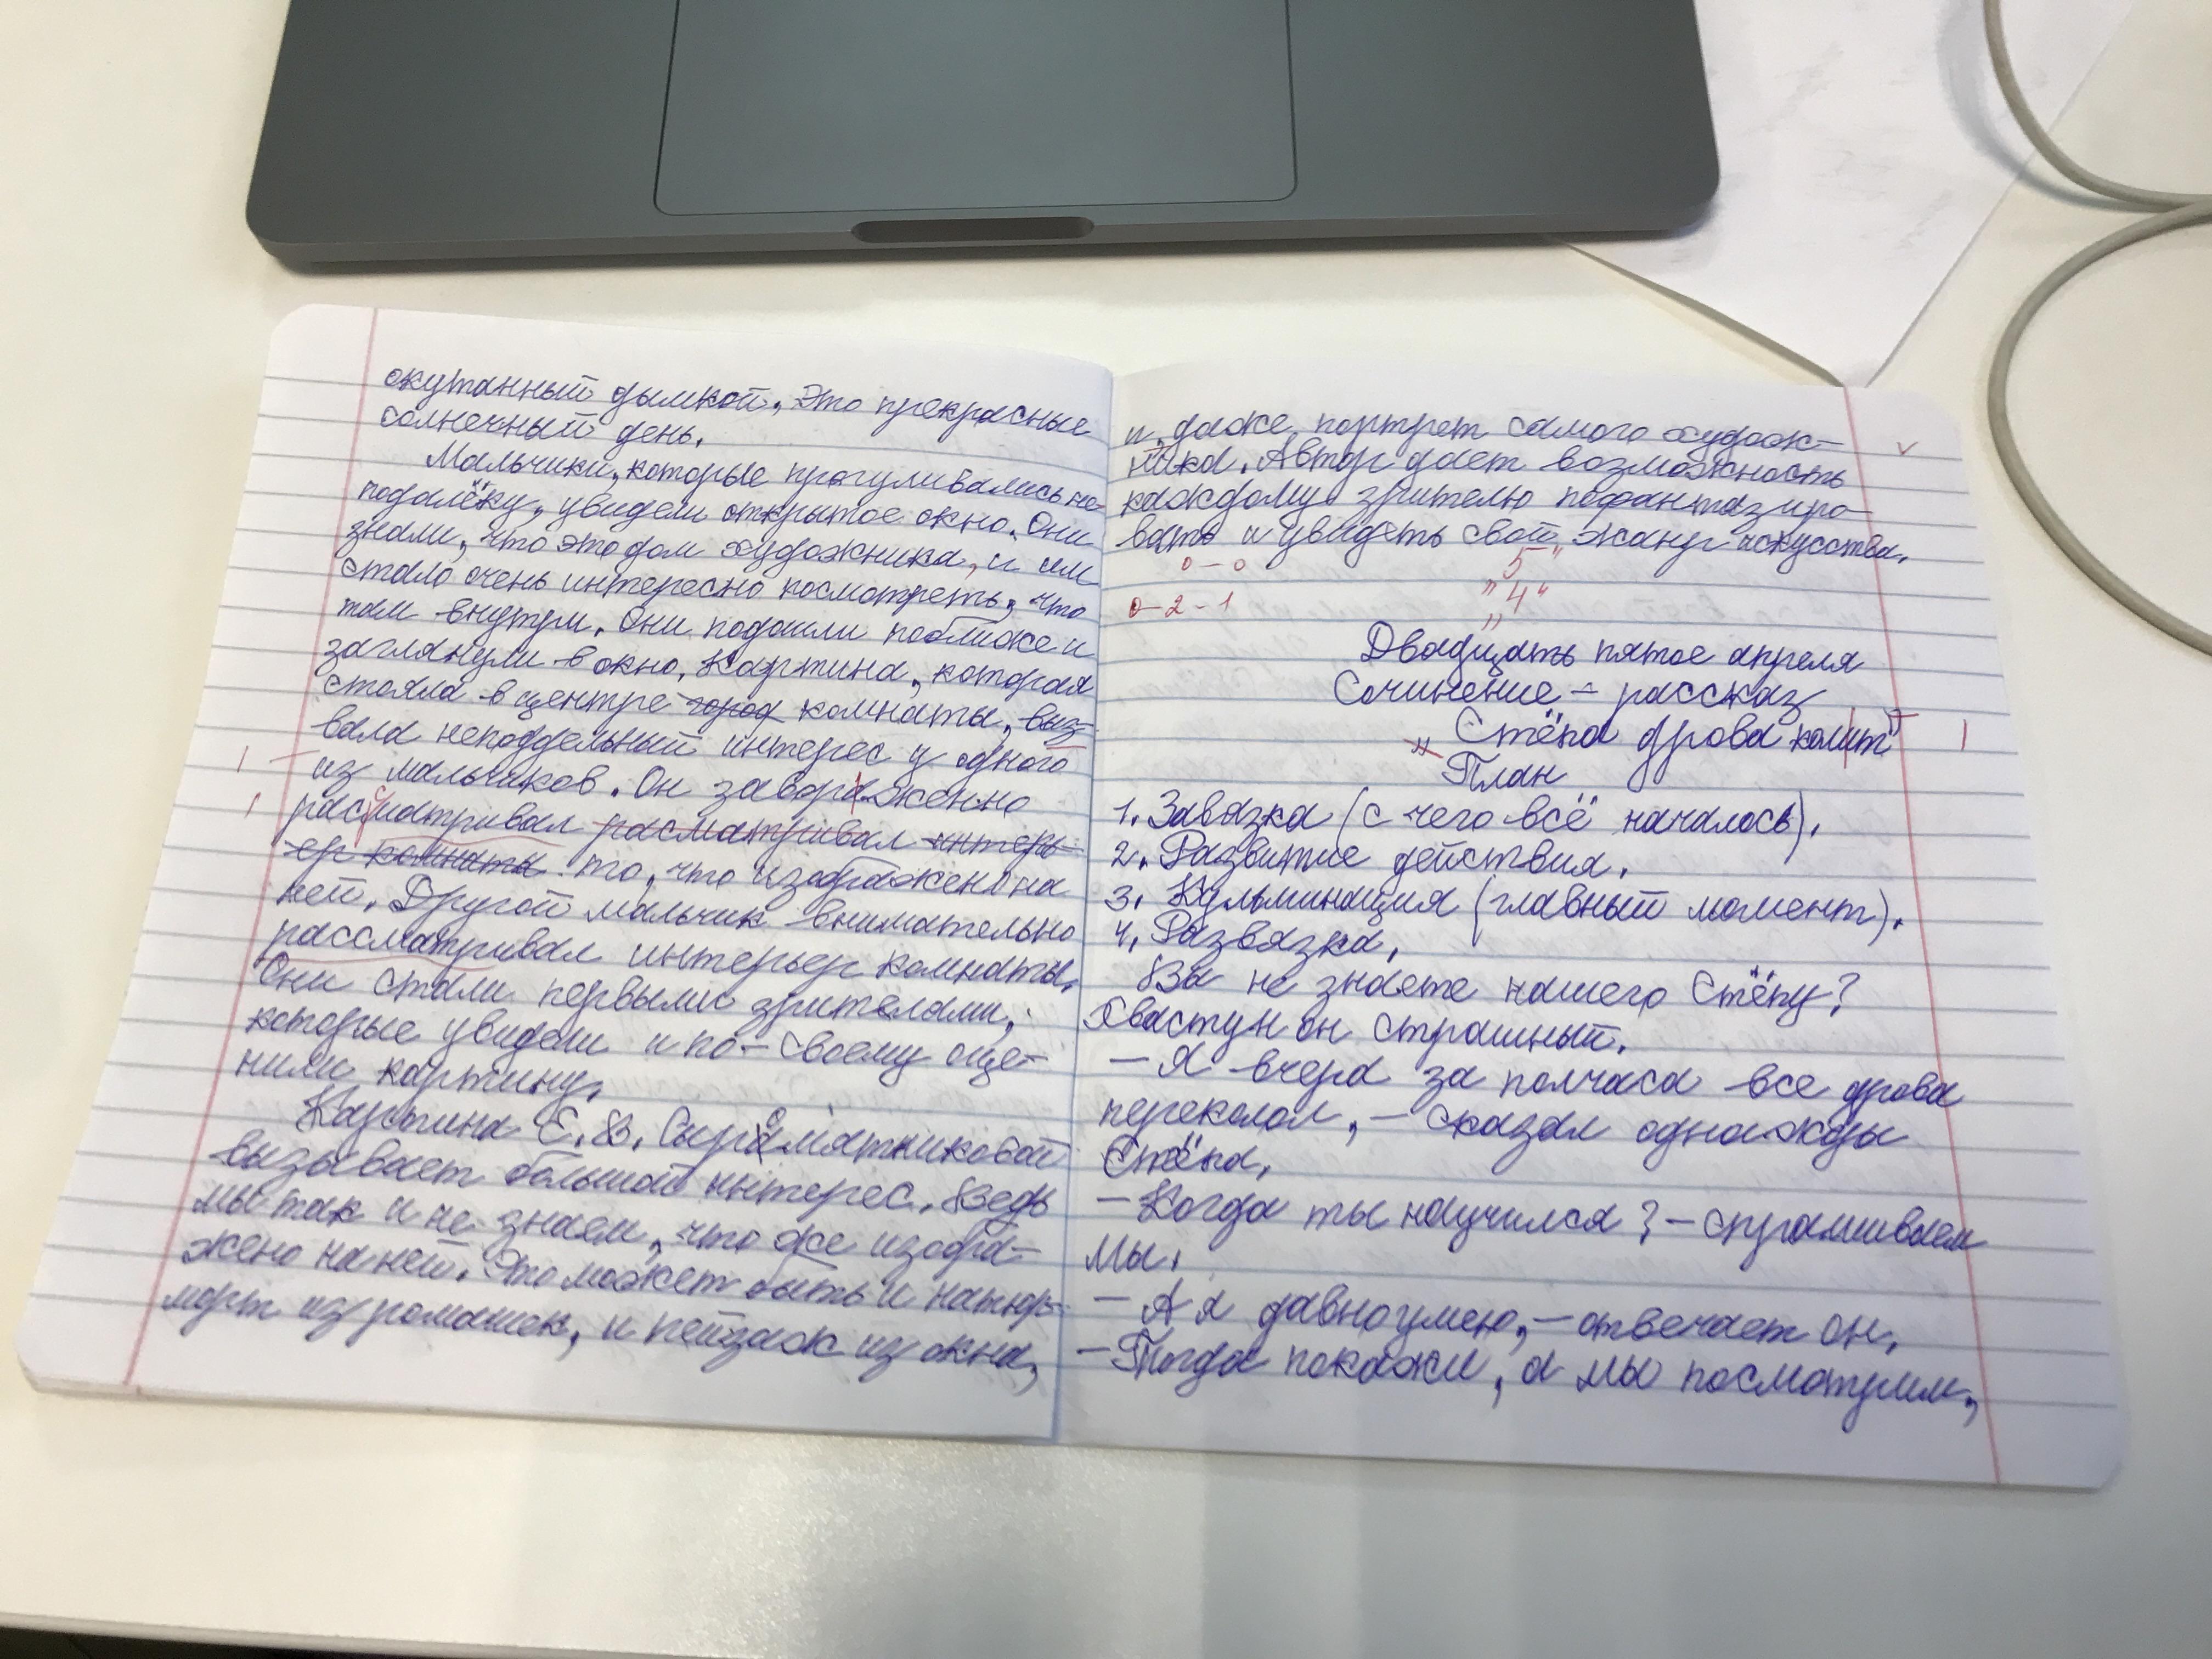 окутанный дымкой. Это прекрасные
солнечный день.
Мальчики, которые прогуливались не-
подалёку, увидели открытое окно. Они
знали, что это дом художника, и им
стало очень интересно посмотреть, что
там внутри. Они подошли поближе и
заглянули в окно. Картина, которая
стояла в центре город комнаты, выз-
вала неподдельный интерес у одного
из мальчиков. Он заворажённо
рассматривал расматривал интерь-
ер комнаты то, что изображено на
ней. Другой мальчик внимательно
рассматривал интерьер комнаты.
Они стали первыми зрителями,
которые увидели и по-своему оце-
нили картину.
Картина Е. В. Сыромятниковой
вызывает большой интерес. Ведь
мы так и не знаем, что же изобра-
жено на ней. Это может быть и натюр-
морт из ромашек, и пейзаж из окна,
и, даже, портрет самого худож-
ника. Автор дает возможность
каждому зрителю пофантазиро-
вать и увидеть свой жанр искусства.
0-0 "5"
0-2-1 "4"
Двадцать пятое апреля
Сочинение - рассказ
"Стёпа дрова колит"
План
1. Завязка (с чего всё началось).
2. Развитие действия.
3. Кульминация (главный момент).
4. Развязка.
Вы не знаете нашего Стёпу?
Хвастун он страшный.
- Я вчера за полчаса все дрова
переколол, - сказал однажды
Стёпа.
- Когда ты научился? - спрашиваем
мы.
- А я давно умею, - отвечает он.
- Тогда покажи, а мы посмотрим,